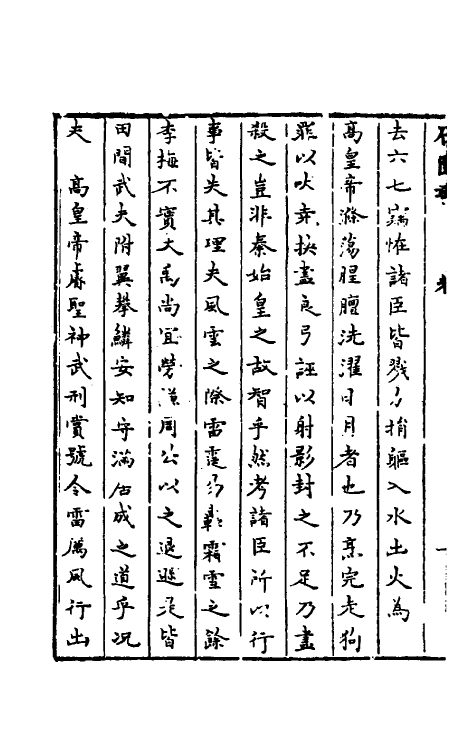 石匱書 卷 一
去六七竊恠諸臣皆戮力捐軀入水土火為
高皇帝滌蕩腥膻洗濯日月者也乃烹完走狗
罪以吠堯抉盡良弓誣以射影封之不足乃盡
殺之豈非秦始皇之故智乎然考諸臣所以行
事皆失其理夫風雲之際雷霆易彰霜雪之餘
李梅不實大禹尚宜勞謙周公以之退遜是皆
田間武夫附翼攀鱗安知守滿居成之道乎况
夫 高皇帝睿聖神武刑賞號令雷厲風行出